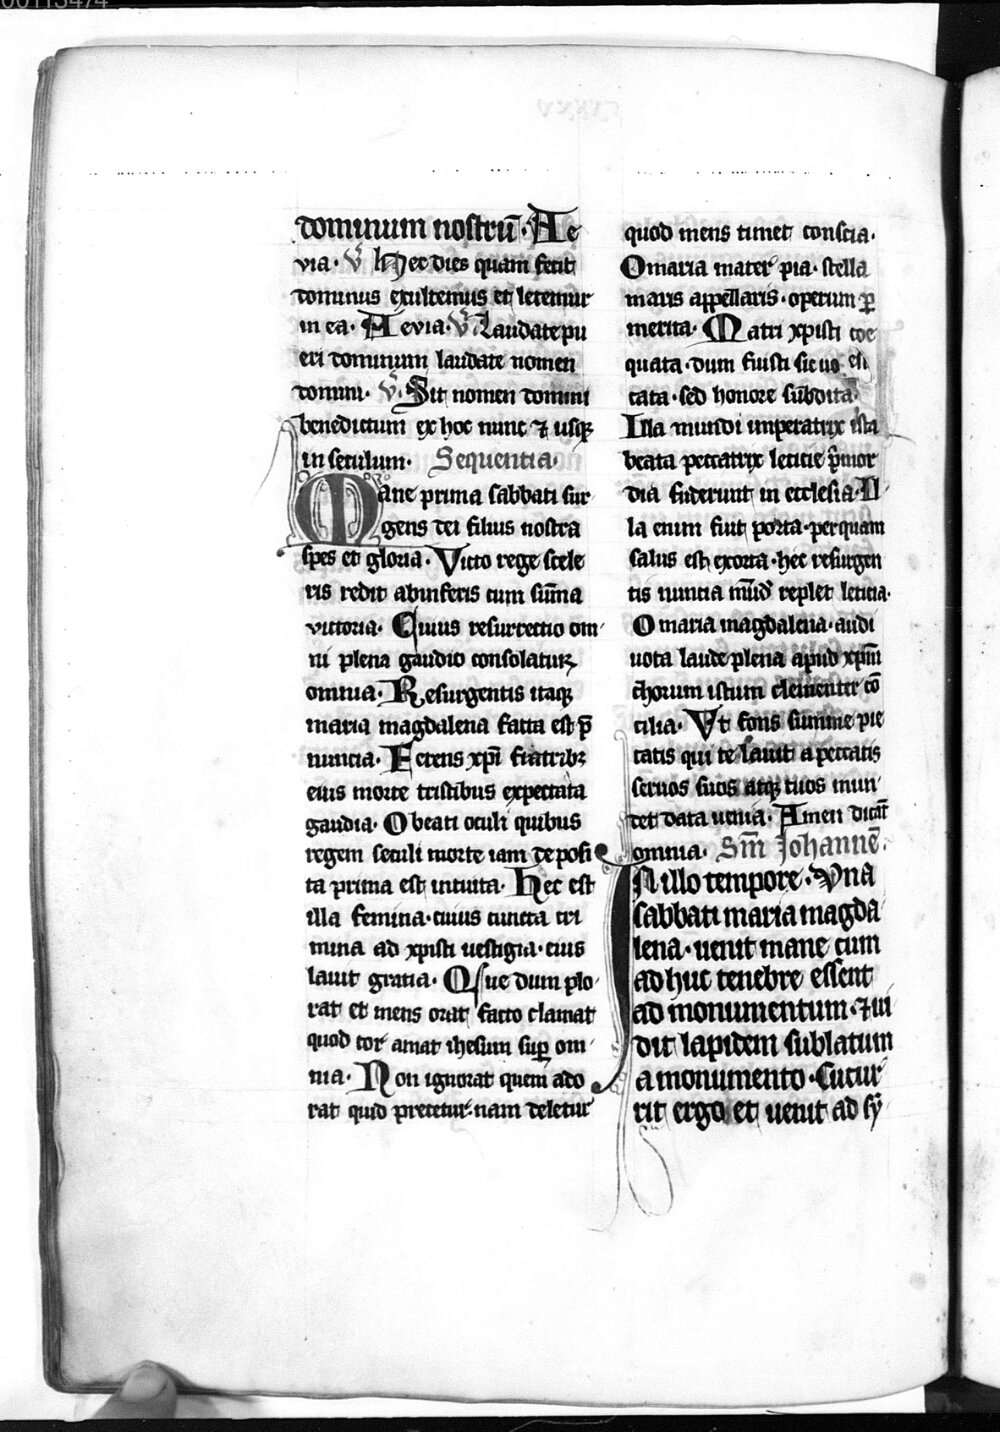 00113474
dominum nostrū. Ae
via. V̄ Hec dies quam fecit
dominus exultemus et letemur
in ea. Aevia. V̄ Laudate pu
eri dominum laudate nomen
domini. V̄. Sit nomen domini
benedictum ex hoc nunc ⁊ usqꝫ
in seculum. Sequentia.
Mane prima sabbati sur
gens dei filius nostra
spes et gloria. Victo rege scele
ris redit ab inferis cum sūma
victoria. Cuius resurrectio om
ni plena gaudio consolatur
omnia. Resurgentis itaqꝫ
maria magdalena facta est p̄
nuncia. Ferens xp̄i fratribꝫ
eius morte tristibus expectata
gaudia. O beati oculi quibus
regem seculi morte iam deposi
ta prima est intuita. Hec est
illa femina. cuius cuncta cri
mina ad xpisti vestigia. eius
lavit gratia. Que dum plo
rat et mens orat facto clamat
quod cor amat ihesum suꝑ om
nia. Non ignorat quem ado
rat quid precetur. nam deletur
quod mens timet conscia.
O maria mater pia. stella
maris appellaris. operum ꝑ
merita. Matri xpisti coe
quata. dum fuisti sic vo
cata. sed honore subdita.
Illa mundi imperatrix ista
beata peccatrix leticie p̄mor
dia fuderunt in ecclesia. Il
la enim fuit porta. per quam
salus est exorta. hec resurgen
tis nuncia mūd replet leticia.
O maria magdalena. audi
vota laude plena apud xpm̄
chorum istum clementer cō
cilia. Vt fons summe pie
tatis qui te lavit a peccatis
servos suos atqꝫ tuos mun
det data venia. Amen dicāt
omnia. Sm̄ Johannē.
In illo tempore. Vna
sabbati maria magda
lena. venit mane cum
ad huc tenebre essent
ad monumentum. ⁊ vi
dit lapidem sublatum
a monumento. Cucur
rit ergo et venit ad sy